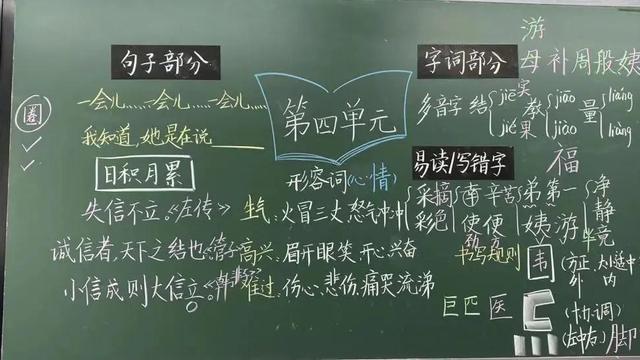 游
句子部分
字词部分
母 补 周 段 姨
一会儿……一会儿……一会儿……
第四单元
多音字 结 jiē 实 jié 教 jiāo jiào 量 liáng liàng
果
圈
我知道，她是在说
易读/写错字
福
日积月累
形容词(心情)
采摘 南 辛苦 弟 第一 净
彩色 使便 姨 游 静
竞
失信不立。《左传》
生气：火冒三丈 怒气冲冲
书写规则
韦
诚信者，天下之结也。《管子》
高兴：眉开眼笑 开心 兴奋
(方正 大小适中
外 内
小信成则大信立。《韩非子》
难过：伤心 悲伤 痛哭流涕
巨匹医
匚
(左中右)脚